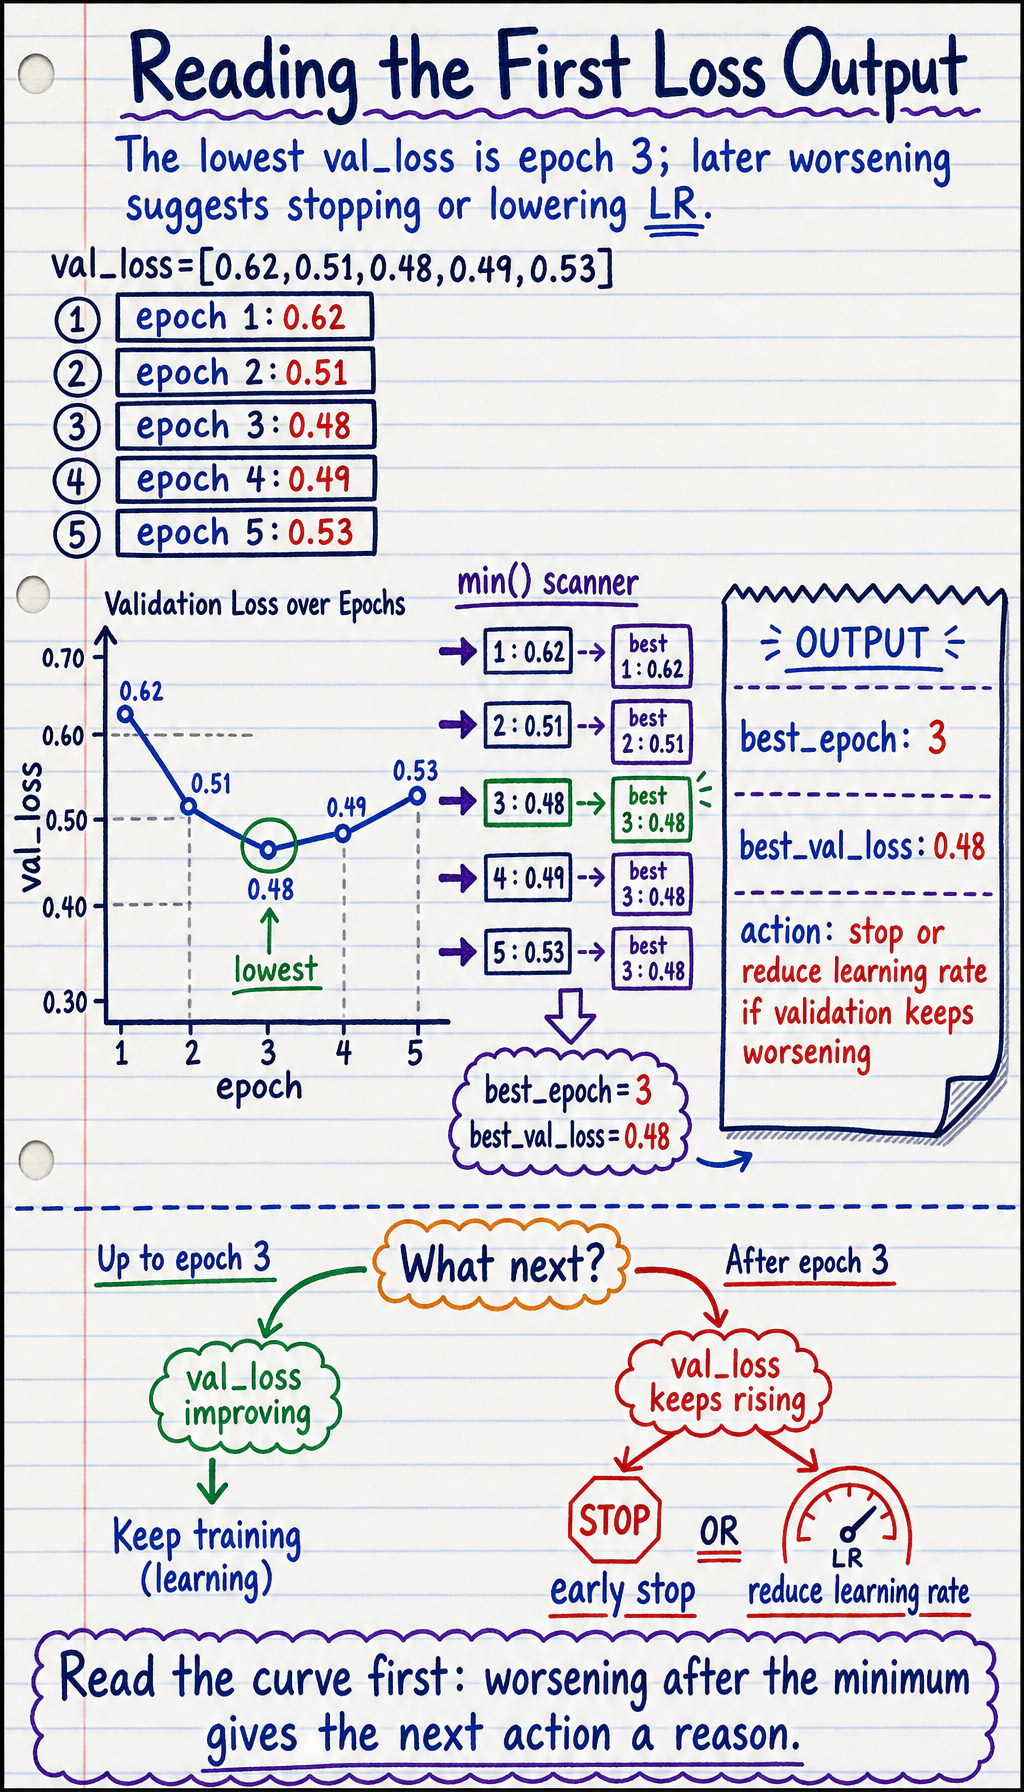 Reading the First Loss Output
The lowest val_loss is epoch 3; later worsening
suggests stopping or lowering LR.
val_loss=[0.62,0.51,0.48,0.49,0.53]
1 epoch 1: 0.62
2 epoch 2: 0.51
3 epoch 3: 0.48
4 epoch 4: 0.49
5 epoch 5: 0.53
Validation Loss over Epochs
val_loss
0.70
0.60
0.50
0.40
0.30
0.62
0.51
0.48
0.49
0.53
lowest
1 2 3 4 5
epoch
min() scanner
1: 0.62
best
1: 0.62
2: 0.51
best
2: 0.51
3: 0.48
best
3: 0.48
4: 0.49
best
3: 0.48
5: 0.53
best
3: 0.48
best_epoch = 3
best_val_loss = 0.48
OUTPUT
best_epoch: 3
best_val_loss: 0.48
action: stop or
reduce learning rate
if validation keeps
worsening
What next?
Up to epoch 3
val_loss
improving
Keep training
(learning)
After epoch 3
val_loss
keeps rising
STOP
early stop
OR
LR
reduce learning rate
Read the curve first: worsening after the minimum
gives the next action a reason.